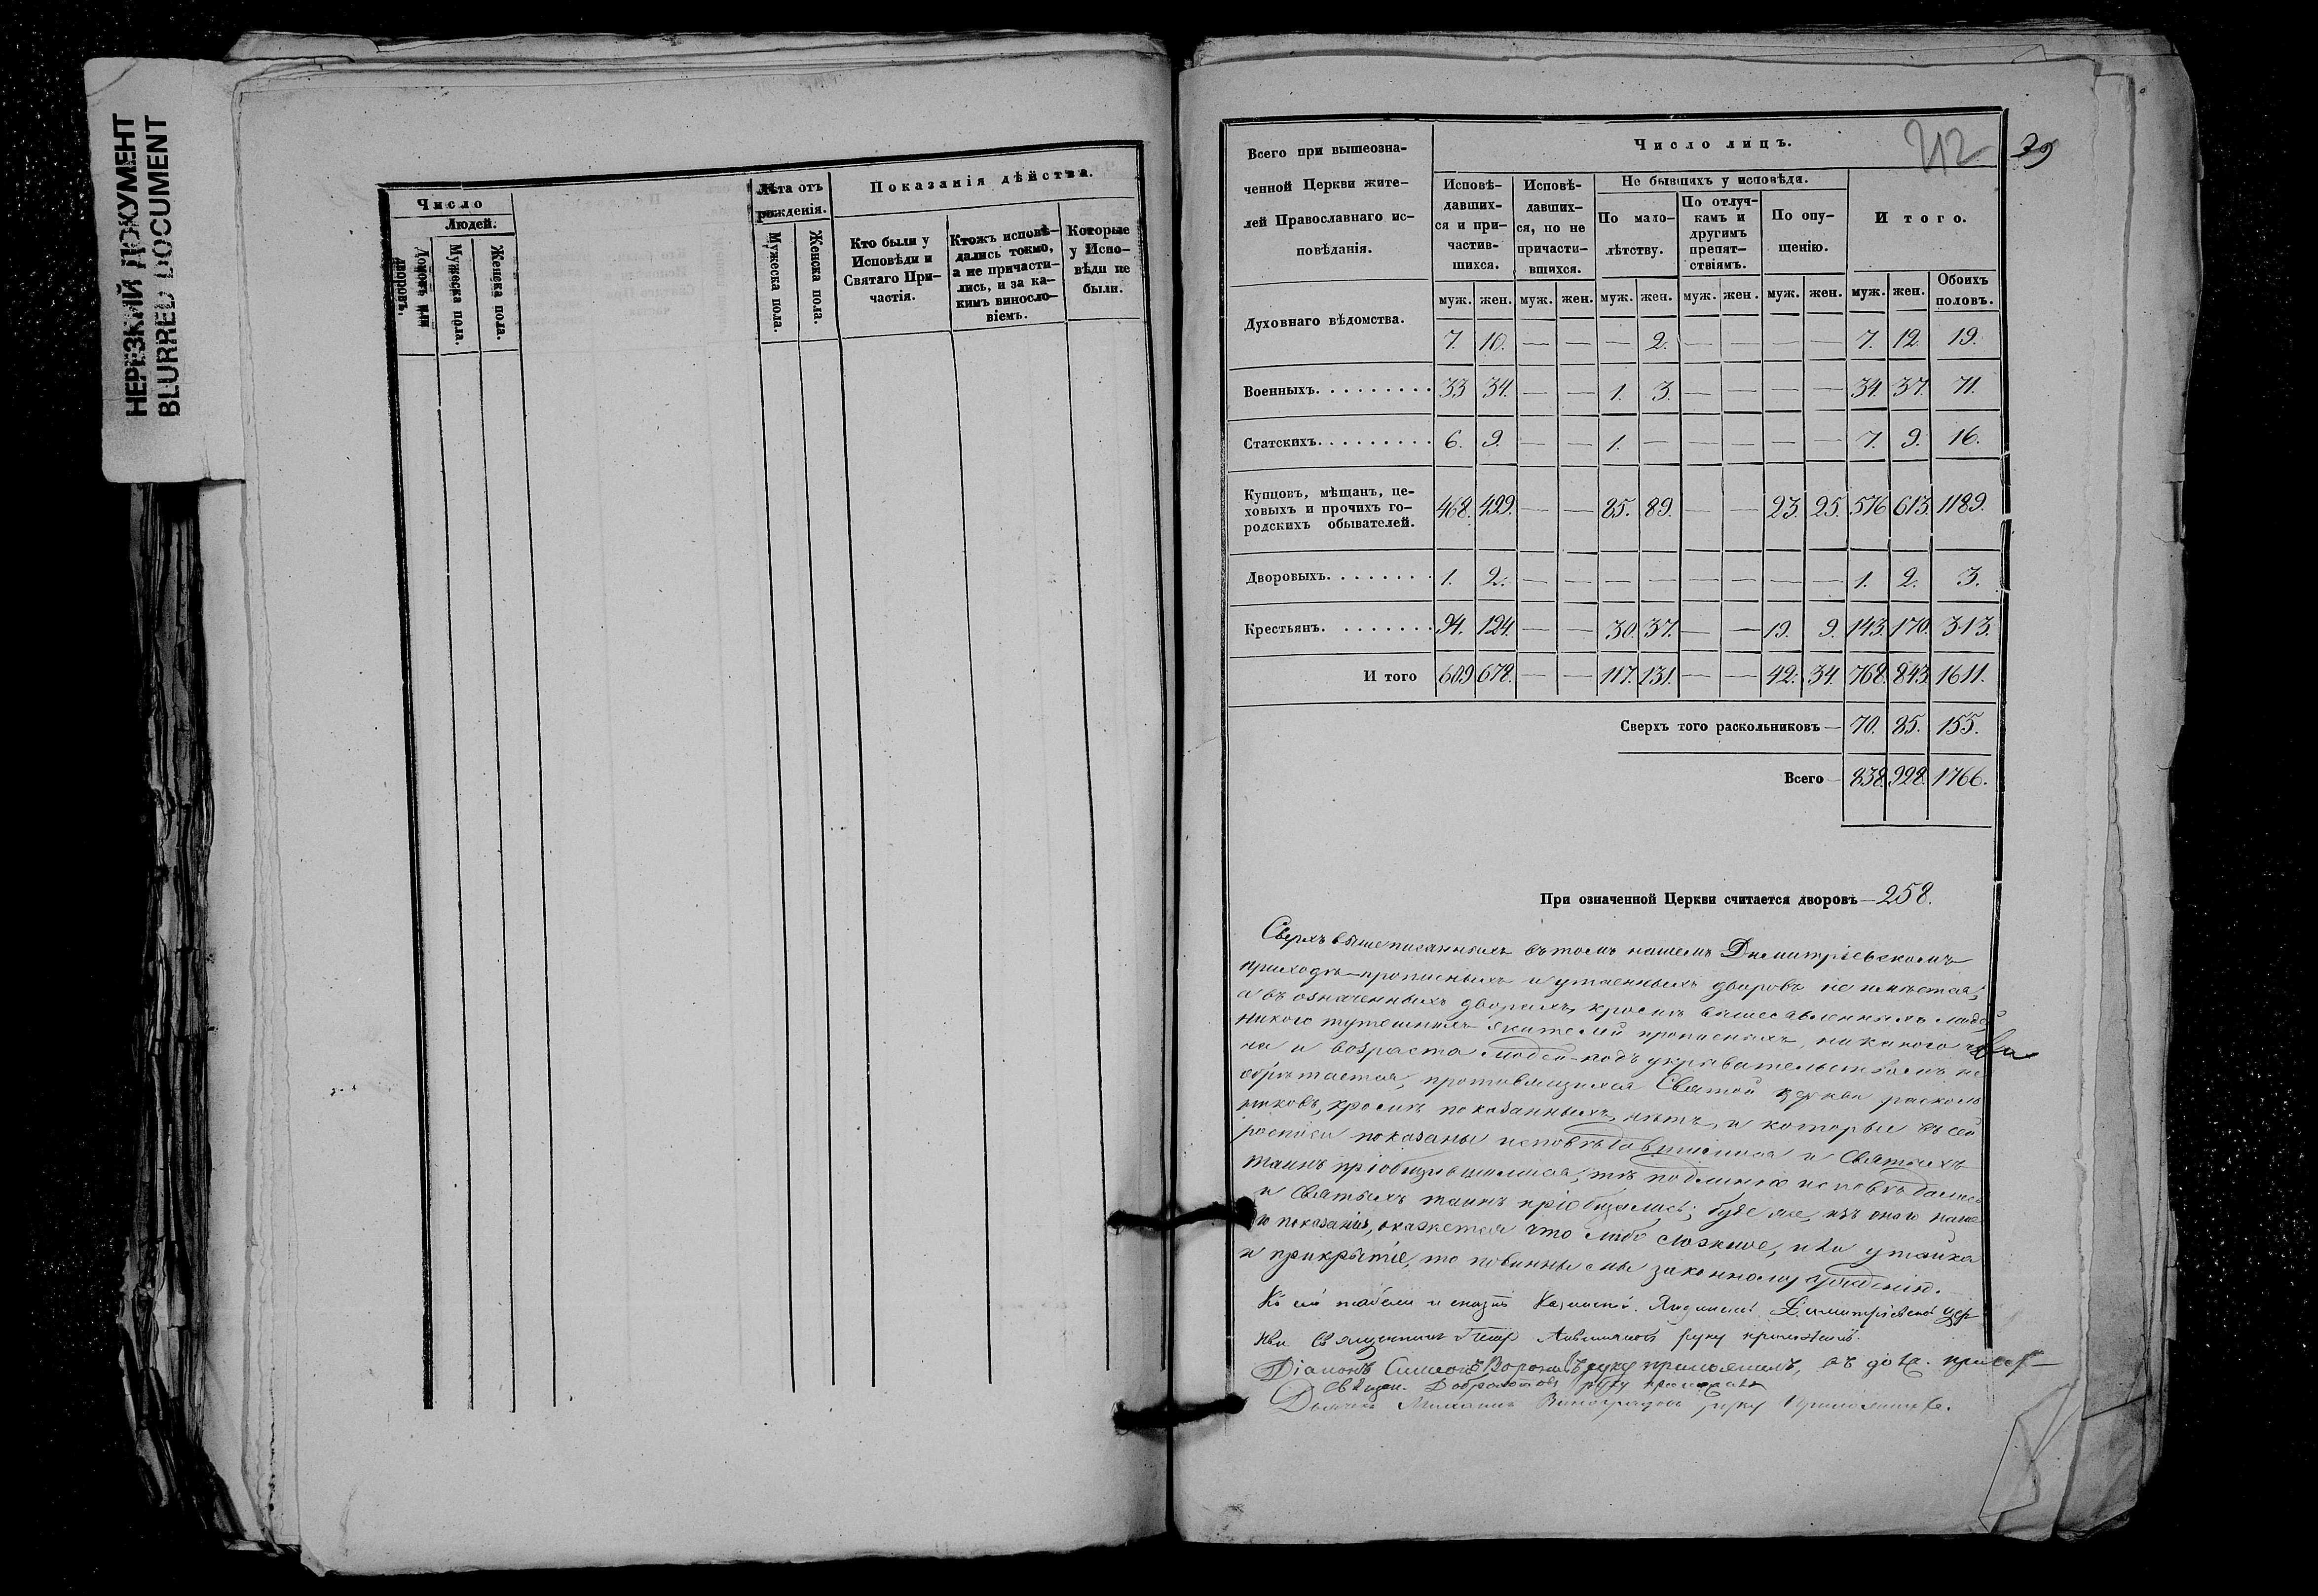 НЕРЕЗКИЙ ДОКУМЕНТ
BLURRED DOCUMENT
Число
Людей.
Домовъ или дворовъ.
Мужеска пола.
Женска пола.
Лѣта отъ рожденія.
Мужеска пола.
Женска пола.
Показанія дѣйства.
Кто были у Исповѣди и Святаго Причастія.
Ктожъ исповѣдались токмо, а не причастились, и за какимъ винословіемъ.
Которые у Исповѣди не были.
212
29
Всего при вышеозна-
ченной Церкви жите-
лей Православнаго ис-
повѣданія.
Число лицъ.
Исповѣ-
давших-
ся и при-
частив-
шихся.
Исповѣ-
давших-
ся, но не
причасти-
вшихся.
Не бывшихъ у исповѣди.
По мало-
лѣтству.
По отлуч-
камъ и
другимъ
препят-
ствіямъ.
По опу-
щенію.
И того.
муж. жен. муж. жен. муж. жен. муж. жен. муж. жен. муж. жен. Обоихъ половъ.
Духовнаго вѣдомства. 7. 10. — — — 2. — — — — 7. 12. 19.
Военныхъ. 33 34. — — 1. 3. — — — — 34. 37. 71.
Статскихъ. 6. 9. — — 1. — — — — — 7. 9. 16.
Купцовъ, мѣщанъ, це-
ховыхъ и прочихъ го-
родскихъ обывателей. 468. 499. — — 85. 89. — — 23. 25. 576 613. 1189.
Дворовыхъ. 1. 2. — — — — — — — — 1. 2. 3.
Крестьянъ. 94. 124. — — 30. 37. — — 19. 9. 143. 170. 313.
И того 609 678. — — 117. 131. — — 42. 34. 768. 843. 1611.
Сверхъ того раскольниковъ — 70. 85. 155.
Всего — 838. 928. 1766.
При означенной Церкви считается дворовъ — 258.
Сверхъ вышеписанныхъ въ томъ нашемъ Димитріевскомъ
приходѣ прописныхъ и утаенныхъ дворовъ не имѣется,
а въ означенныхъ дворахъ, кромѣ вышеявленныхъ людей
никого тутошнихъ жителей прописныхъ, никакого чи
на и возраста людей подъ укрывательствомъ не
обрѣтается, противящихся Святой церкви расколь
никовъ, кромѣ показанныхъ, нѣтъ, и которые въ сей
росписи показаны исповѣдавшимися и Святыхъ
таинъ пріобщившимися, тѣ подлинно исповѣдались
и Святыхъ таинъ пріобщались; буде же, изъ онаго наше
го показанія, окажется что либо ложное, или утайка
и прикрытіе, то повинны мы законному сужденію.
Къ сей табели Димитріевской цер
кви Священникъ Петръ руку приложилъ.
Діаконъ Симеонъ Вороновъ руку приложилъ,
Священ. руку
Дьячекъ Михаилъ Виноградовъ руку приложилъ.